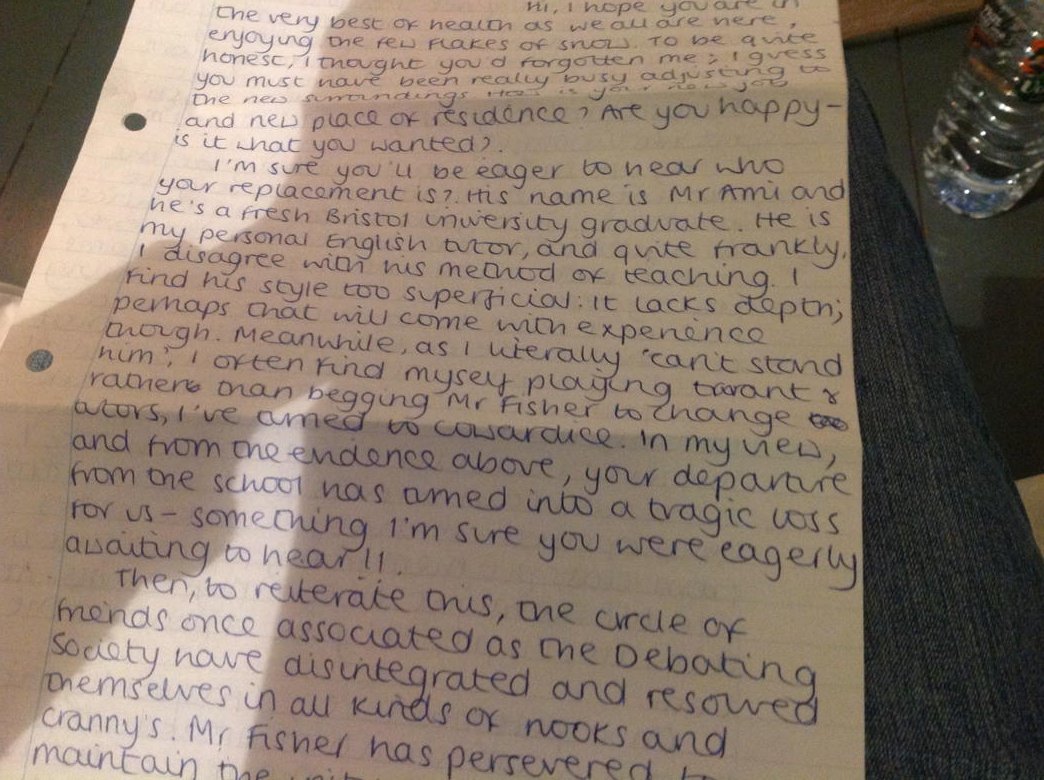 Hi, I hope you are in
the very best of health as we all are here,
enjoying the few flakes of snow. To be quite
honest, I thought you'd forgotten me; I guess
you must have been really busy adjusting to
the new surrondings. How is your new job
and new place of residence? Are you happy-
is it what you wanted?
I'm sure you'll be eager to hear who
your replacement is?. His name is Mr Ami and
he's a fresh Bristol University graduate. He is
my personal English tutor, and quite frankly,
I disagree with his method of teaching. I
find his style too superficial: It lacks depth;
perhaps that will come with experience
though. Meanwhile, as I literally 'can't stand
him', I often find myself playing truant &
rather than begging Mr Fisher to change
tutors, I've turned to cowardice. In my view,
and from the evidence above, your departure
from the school has turned into a tragic loss
for us - something I'm sure you were eagerly
awaiting to hear!!.
Then, to reiterate this, the circle of
friends once associated as the Debating
Society have disintegrated and resolved
themselves in all kinds of nooks and
cranny's. Mr Fisher has persevered to
maintain the